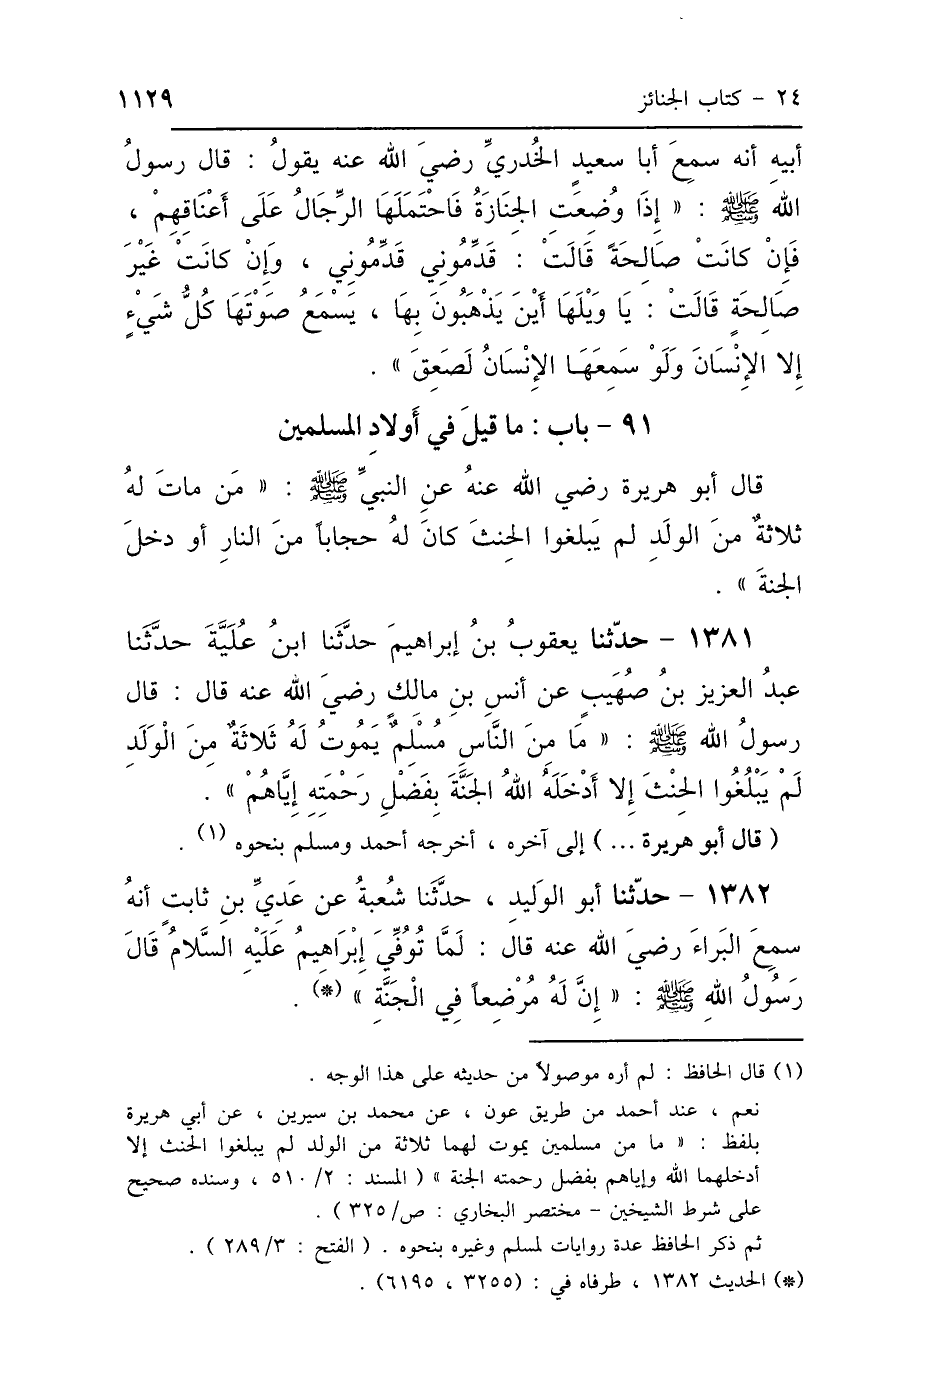 ٢٤ - كتاب الجنائز ١١٢٩
أبيهِ أنه سمعَ أبا سعيدٍ الخُدريِّ رضيَ الله عنه يقولُ : قال رسولُ
الله ﷺ : « إِذَا وُضِعَتِ الجَنَازَةُ فَاحْتَمَلَهَا الرِّجَالُ عَلَى أَعْنَاقِهِمْ ،
فَإِنْ كانَتْ صَالِحَةً قَالَتْ : قَدِّمُوني قَدِّمُوني ، وَإِنْ كانَتْ غَيْرَ
صَالِحَةٍ قَالَتْ : يَا وَيْلَهَا أَيْنَ يَذْهَبُونَ بِهَا ، يَسْمَعُ صَوْتَهَا كُلُّ شَيْءٍ
إِلا الإِنْسَانَ وَلَوْ سَمِعَهَا الإِنْسَانُ لَصَعِقَ » .
٩١ - باب : ما قيلَ في أولادِ المسلمين
قال أبو هريرة رضي الله عنهُ عنِ النبيِّ ﷺ : « مَن ماتَ لهُ
ثلاثةٌ منَ الولَدِ لم يَبلغوا الحِنثَ كانَ لهُ حجاباً منَ النارِ أو دخلَ
الجنةَ » .
١٣٨١ - حدّثنا يعقوبُ بنُ إبراهيمَ حدَّثَنا ابنُ عُلَيَّةَ حدَّثَنا
عبدُ العزيزِ بنُ صُهَيبٍ عن أنسِ بنِ مالكٍ رضيَ الله عنه قال : قال
رسولُ الله ﷺ : « مَا مِنَ النَّاسِ مُسْلِمٌ يَمُوتُ لَهُ ثَلاثَةٌ مِنَ الْوَلَدِ
لَمْ يَبْلُغُوا الحِنْثَ إِلا أَدْخَلَهُ اللهُ الجَنَّةَ بِفَضْلِ رَحْمَتِهِ إِيَّاهُمْ » .
( قال أبو هريرة ... ) إلى آخره ، أخرجه أحمد ومسلم بنحوه (١) .
١٣٨٢ - حدّثنا أبو الوَليدِ ، حدَّثَنا شُعبةُ عن عَديِّ بنِ ثابتٍ أنهُ
سمعَ البَراءَ رضيَ الله عنه قال : لَمَّا تُوُفِّيَ إِبْرَاهِيمُ عَلَيْهِ السَّلامُ قَالَ
رَسُولُ اللهِ ﷺ : « إِنَّ لَهُ مُرْضِعاً فِي الْجَنَّةِ » (*) .
(١) قال الحافظ : لم أره موصولاً من حديثه على هذا الوجه .
نعم ، عند أحمد من طريق عون ، عن محمد بن سيرين ، عن أبي هريرة
بلفظ : « ما من مسلمين يموت لهما ثلاثة من الولد لم يبلغوا الحنث إلا
أدخلهما الله وإياهم بفضل رحمته الجنة » ( المسند : ٥١٠/٢ ، وسنده صحيح
على شرط الشيخين - مختصر البخاري : ص/٣٢٥ ) .
ثم ذكر الحافظ عدة روايات لمسلم وغيره بنحوه . ( الفتح : ٢٨٩/٣ ) .
(*) الحديث ١٣٨٢ ، طرفاه في : (٣٢٥٥ ، ٦١٩٥) .